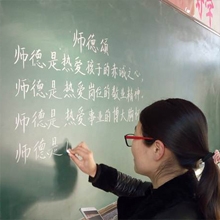 师德颂
师德是热爱孩子的赤诚之心,
师德是热爱岗位的敬业精神,
师德是热爱事业的博大胸
师德是